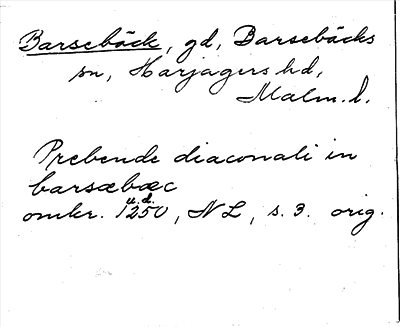 Barsebäck, gd, Barsebäcks
sn, Harjagers hd,
Malm. l.
Prebende diaconali in
barsæbæc
omkr. 1250, u.d. NL, s. 3. orig.